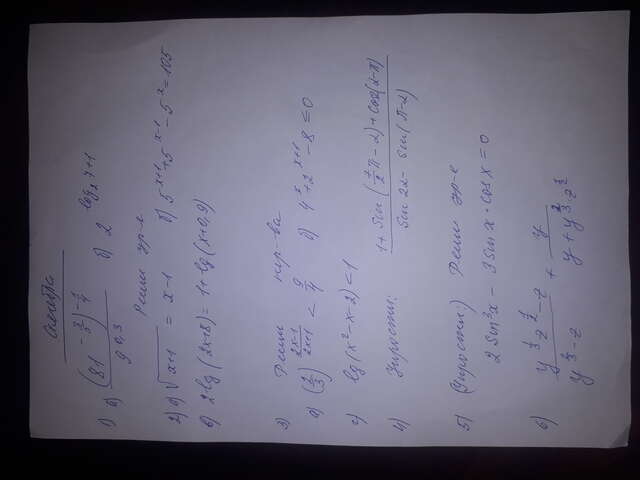 Алгебра
1) а) (81^(-3/5))^(-1/4) / 9^0,3 б) 2^(log₂7+1)
Реши ур-е
2) а) √(x+1) = x-1 б) 5^(x+1)+5^(x-1)-5^x=105
в) 2lg(2x+8)=1+lg(x+0,9)
3) Реши нер-ва
а) (2/3)^((2x-1)/(2x+1)) < 9/4 б) 4^x+2^(x+1)-8≤0
г) lg(x²-x-2)<1
4) Упрости: (1+Sin(7/2π-2)+Cos2(2-π)) / (Sin22-Sin(π-2))
5) (Упрости:) Реши ур-е
2Sin²x-3Sinx·Cosx=0
6) (y^(1/3)z^(1/2)-z) / (y^(2/3)-z) + y / (y+y^(2/3)·z^(1/2))